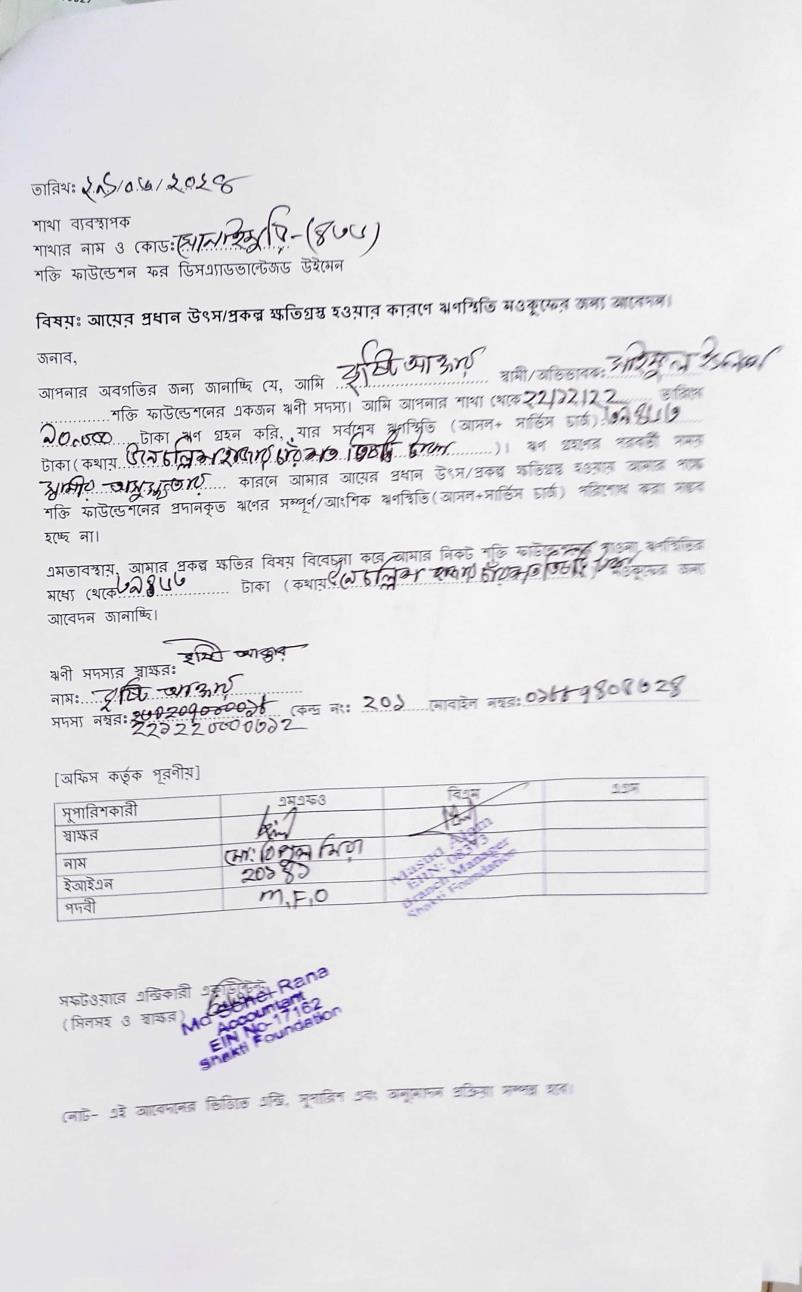 তারিখ: 
শাখা ব্যবস্থাপক
শাখার নাম ও কোড: সোনাইমুড়ি-
শক্তি ফাউন্ডেশন ফর ডিসএ্যাডভান্টেজড উইমেন
বিষয়: আয়ের প্রধান উৎস/প্রকল্প ক্ষতিগ্রস্থ হওয়ার কারণে ঋণস্থিতি মওকুফের জন্য আবেদন।
জনাব,
আপনার অবগতির জন্য জানাচ্ছি যে, আমি বৃষ্টি আক্তার স্বামী/অভিভাবক:
শক্তি ফাউন্ডেশনের একজন ঋনী সদস্য। আমি আপনার শাখা থেকে 22/12/22 তারিখে
টাকা ঋণ গ্রহন করি, যার সর্বশেষ ঋণস্থিতি (আসল+ সার্ভিস চার্জ)
টাকা (কথায় হাজার চারশত টাকা)। ঋণ গ্রহনের পরবর্তী সময়
স্বামীর অসুস্থতার কারনে আমার আয়ের প্রধান উৎস/প্রকল্প ক্ষতিগ্রস্থ হওয়ায় আমার পক্ষে
শক্তি ফাউন্ডেশনের প্রদানকৃত ঋণের সম্পূর্ন/আংশিক ঋণস্থিতি(আসল+সার্ভিস চার্জ) পরিশোধ করা সম্ভব
হচ্ছে না।
এমতাবস্থায়, আমার প্রকল্প ক্ষতির বিষয় বিবেচনা করে আমার নিকট শক্তি ফাউন্ডেশনের পাওনা ঋণস্থিতির
মধ্যে থেকে টাকা (কথায় হাজার চারশত টাকা) মওকুফের জন্য
আবেদন জানাচ্ছি।
ঋনী সদস্যর স্বাক্ষর: বৃষ্টি আক্তার
নাম: বৃষ্টি আক্তার
সদস্য নম্বর: কেন্দ্র নং: ২০১ মোবাইল নম্বর:
[অফিস কর্তৃক পূরণীয়]
সুপারিশকারী এমএফও বিএম এএম
স্বাক্ষর
নাম মো: মিয়া Masud Alam
ইআইএন EIN:
পদবী M.F.O Branch Manager
Shakti Foundation
সফটওয়্যারে এন্ট্রিকারী
(সিলসহ ও স্বাক্ষর) Md Sohel Rana
Accountant
EIN No-17162
Shakti Foundation
নোট- এই আবেদনের ভিত্তিতে এন্ট্রি, সুপারিশ এবং অনুমোদন প্রক্রিয়া সম্পন্ন হবে।